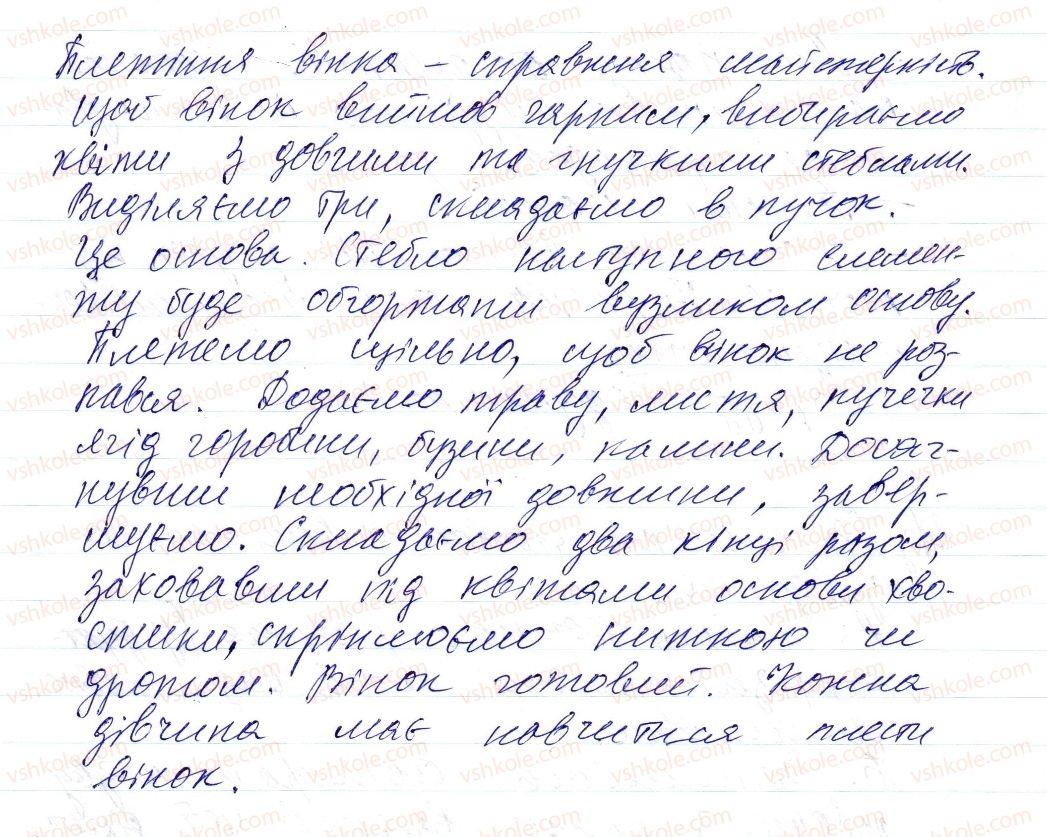 Плетіння вінка – справжня майстерність.
Щоб вінок вийшов гарним, вибираємо
квіти з довгими та гнучкими стеблами.
Виділяємо три, складаємо в пучок.
Це основа. Стебло наступного елемен-
ту буде обгортати вузликом основу.
Плетемо щільно, щоб вінок не роз-
пався. Додаємо траву, листя, пучечки
ягід горобини, бузини, калини. Досяг-
нувши необхідної довжини, завер-
шуємо. Складаємо два кінці разом,
заховавши під квітами основи хво-
стики, скріплюємо ниткою чи
дротом. Вінок готовий. Кожна
дівчина має навчитися плести
вінок.